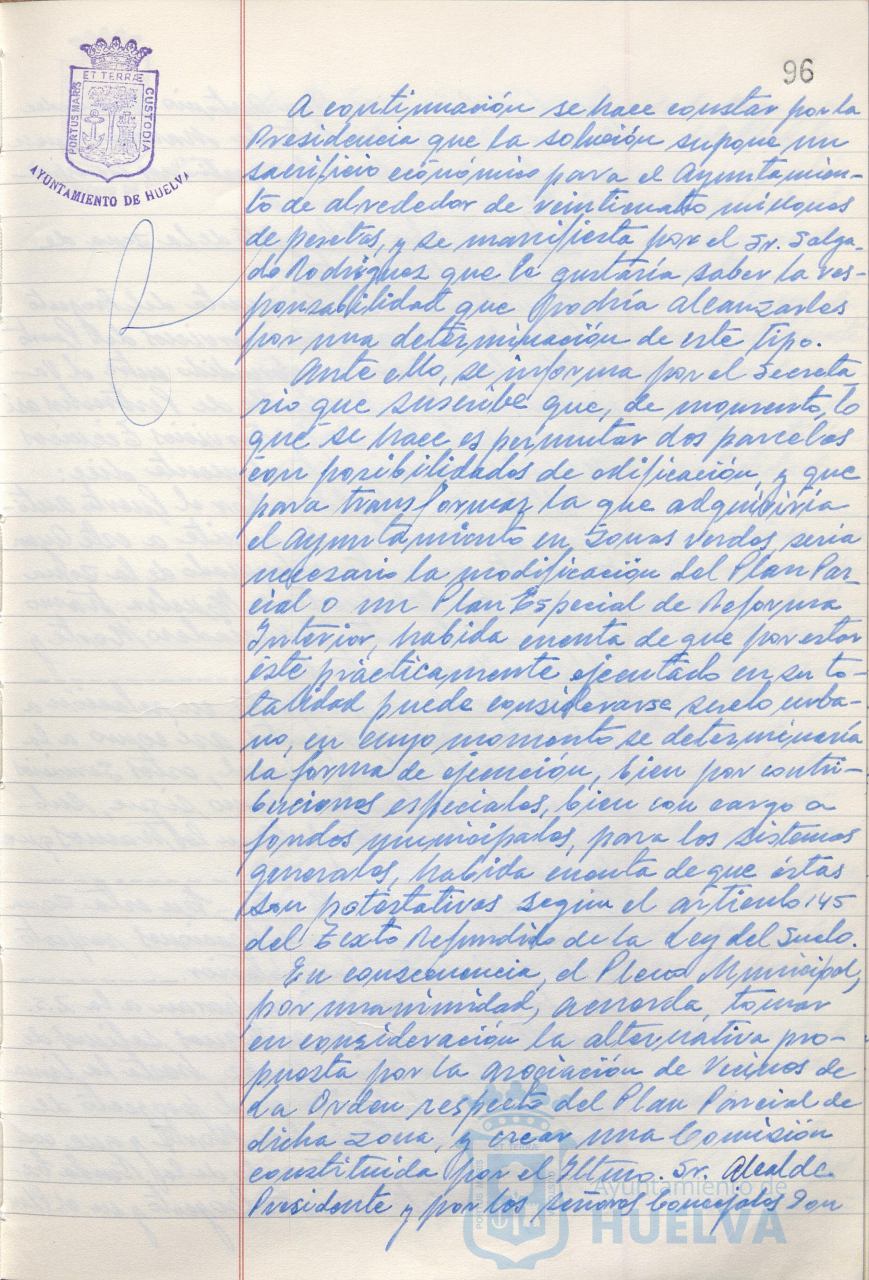 96
ET TERRÆ
PORTUS MARIS
CUSTODIA
AYUNTAMIENTO DE HUELVA
A continuación se hace constar por la
Presidencia que la solución supone un
sacrificio económico para el Ayuntamien-
to de alrededor de veinticuatro millones
de pesetas, y se manifiesta por el Sr. Salga-
do Rodríguez que le gustaría saber la res-
ponsabilidad que podría alcanzarles
por una determinación de este tipo.
Ante ello, se informa por el Secreta-
rio que suscribe que, de momento, lo
que se hace es permutar dos parcelas
con posibilidades de edificación, y que
para transformar la que adquiriría
el Ayuntamiento en zonas verdes, sería
necesario la modificación del Plan Par-
cial o un Plan Especial de Reforma
Interior, habida cuenta de que por estar
éste prácticamente ejecutado en su to-
talidad puede considerarse suelo urba-
no, en cuyo momento se determinaría
la forma de ejecución, bien por contri-
buciones especiales, bien con cargo a
fondos municipales, para los sistemas
generales, habida cuenta de que éstas
son potestativas según el artículo 145
del Texto Refundido de la Ley del Suelo.
En consecuencia, el Pleno Municipal,
por unanimidad, acuerda, tomar
en consideración la alternativa pro-
puesta por la Asociación de Vecinos de
La Orden respecto del Plan Parcial de
dicha zona, y crear una Comisión
constituida por el Iltmo. Sr. Alcalde
Presidente y por los señores Concejales Don
Ayuntamiento de
HUELVA